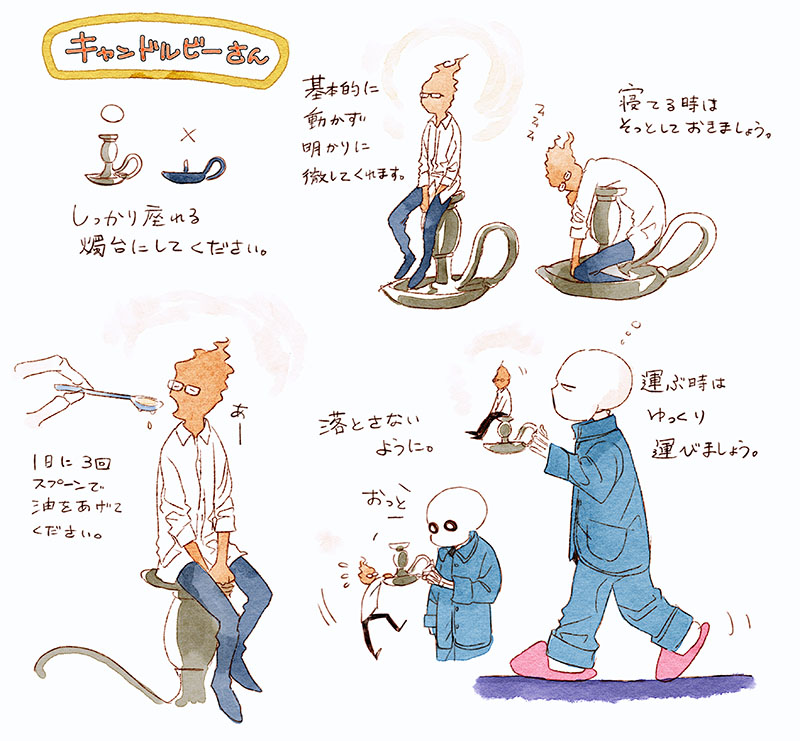 キャンドルビーさん
○
×
しっかり座れる
燭台にしてください。
基本的に
動かず
明かりに
徹してくれます。
ZZZZ
寝てる時は
そっとしておきましょう。
1日に3回
スプーンで
油をあげて
ください。
あー
落とさない
ように。
おっと
運ぶ時は
ゆっくり
運びましょう。